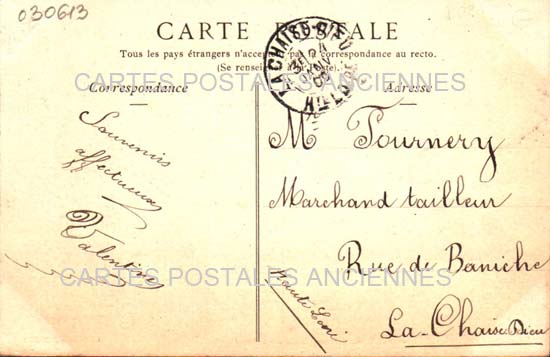 030613
CARTE POSTALE
Tous les pays étrangers n'acceptent pas la correspondance au recto.
(Se renseigner à la Poste).
CARTES POSTALES ANCIENNES
Correspondance
Adresse
LA CHAISE-DIEU
Hte LOIRE
Souvenirs
affectueux
Valentine
M Tournery
Marchand tailleur
Rue de Baniche
CARTES POSTALES ANCIENNES
Haute Loire
La-Chaise Dieu